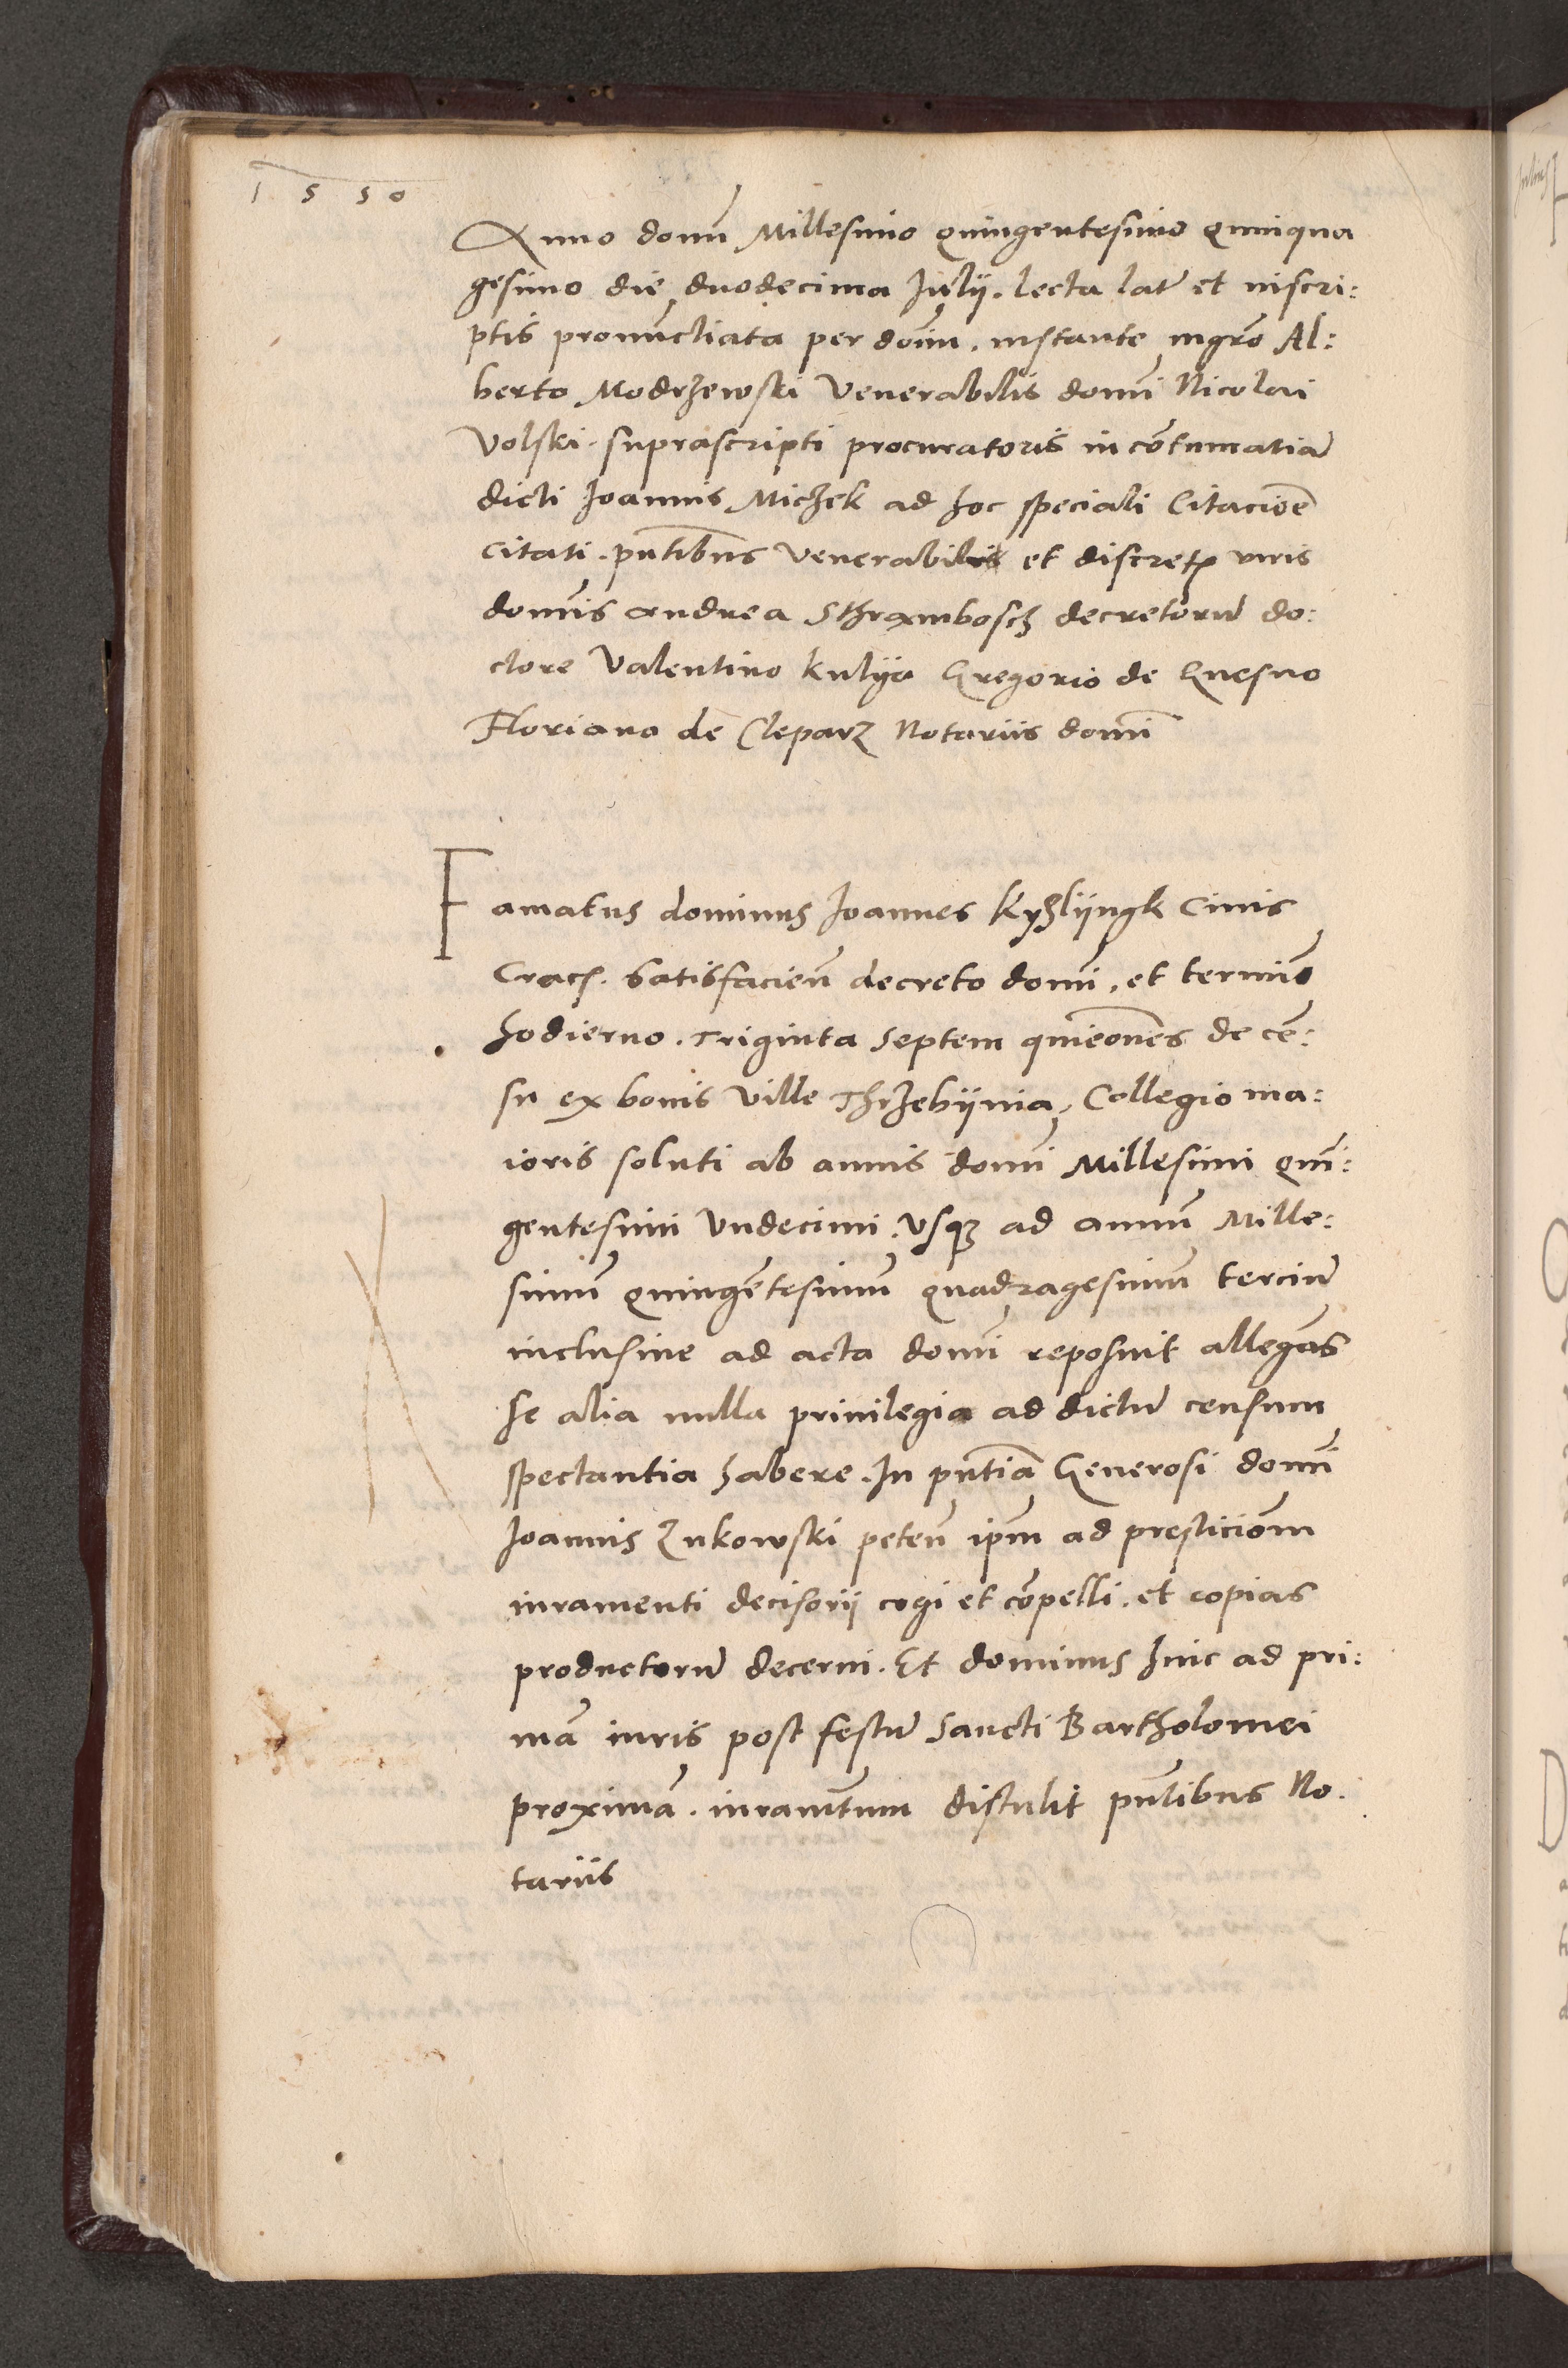 1550
Anno domi Millesimo quingentesimo quinqua
gesimo die duodecima Julij. lecta lata et inscri:
ptis pronuncliata per dom̄. instante mgro Al:
berto Modrzewski Venerabilis domi Nicolai
Volski. suprascripti procuratoris in cōtumatiā
dicti Joannis Miczek ad hoc speciali Citaciōe
citati. pn̄tibus Venerabilis et discret viris
domis andrea Sthrambosch decretorū do:
ctore Valentino kulya Gregorio de Gnesno
Floriano de Cleparz Notariis domi
Famatus dominus Joannes Kyslijngk Ciuis
Crac. satisfacien̄ decreto domi. et termino
hodierno. Triginta septem quieōnes de cē:
su ex bonis Ville Thrzebijnia, Collegio ma:
ioris soluti ab annis domi Millesimi quī:
gentesimi Vndecimi. Vsq3 ad annū Mille:
simū quingētesimū quadragesimū terciū
inclusiue ad acta domi reposuit allegās
se alia nulla priuilegia ad dictū censum
spectantia habere. In pn̄tiā Generosi domi
Joannis Zukowski peten̄ ipm̄ ad presticiōm
iuramenti decisorij cogi et cōpelli. et copias
productorū decerni. Et dominus huic ad pri:
mā iuris post festū Sancti Bartholomei
proximā. iuramtum distulit pn̄tibus No.
tariis